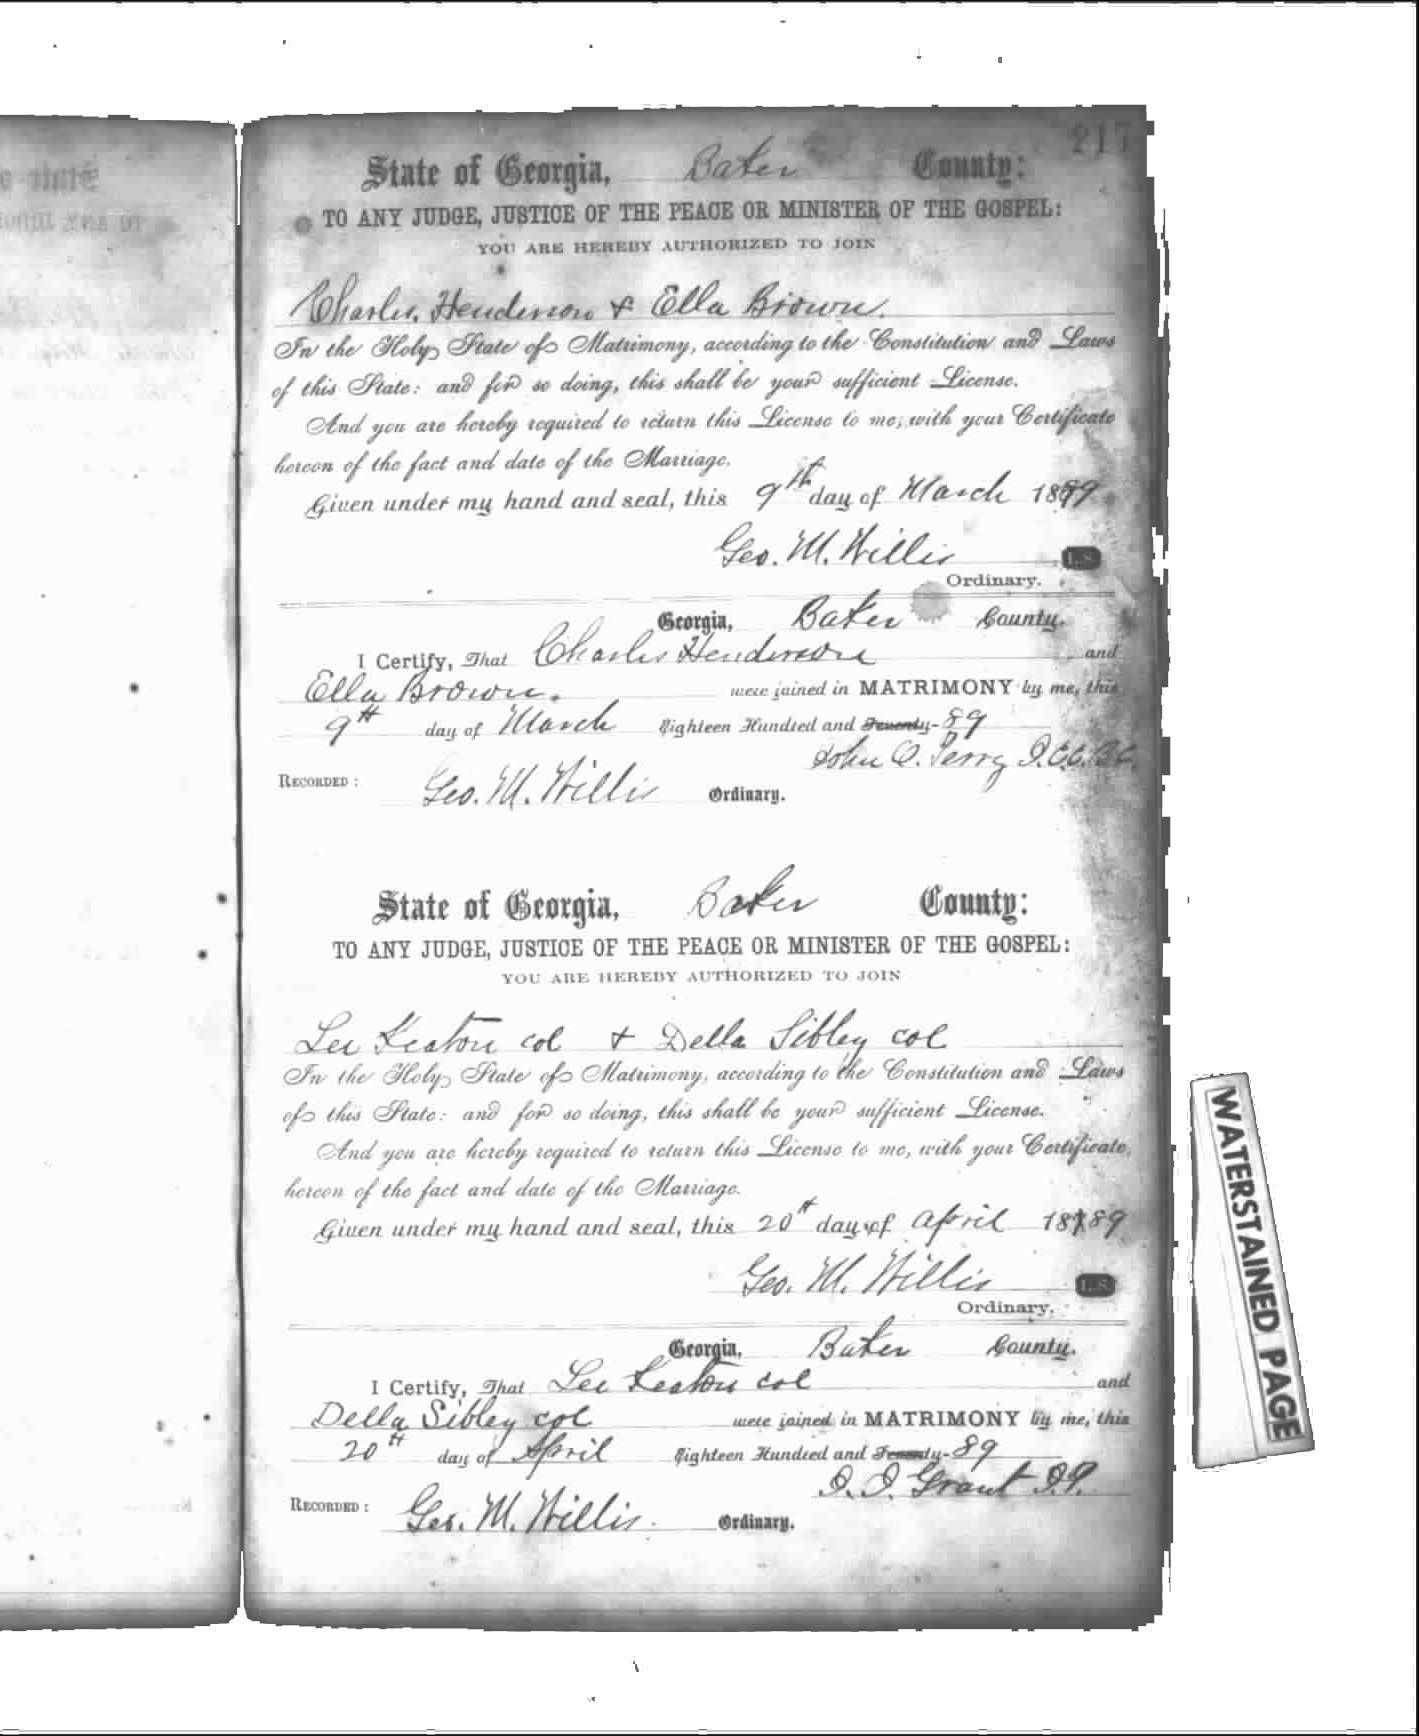 217
State of Georgia, Baker County:
TO ANY JUDGE, JUSTICE OF THE PEACE OR MINISTER OF THE GOSPEL:
YOU ARE HEREBY AUTHORIZED TO JOIN
Charles Henderson & Ella Brown.
In the Holy State of Matrimony, according to the Constitution and Laws
of this State: and for so doing, this shall be your sufficient License.
And you are hereby required to return this License to me, with your Certificate
hereon of the fact and date of the Marriage.
Given under my hand and seal, this 9th day of March 1889
Geo. M. Willis L.S.
Ordinary.
Georgia, Baker County.
I Certify, That Charles Henderson and
Ella Brown. were joined in MATRIMONY by me, this
9th day of March Eighteen Hundred and Seventy-89
John O. Perry J.C.C.B.C.
RECORDED: Geo. M. Willis Ordinary.
State of Georgia, Baker County:
TO ANY JUDGE, JUSTICE OF THE PEACE OR MINISTER OF THE GOSPEL:
YOU ARE HEREBY AUTHORIZED TO JOIN
Lee Keaton col & Della Sibley col
In the Holy State of Matrimony, according to the Constitution and Laws
of this State: and for so doing, this shall be your sufficient License.
And you are hereby required to return this License to me, with your Certificate,
hereon of the fact and date of the Marriage.
Given under my hand and seal, this 20th day of April 18789
Geo. M. Willis L.S.
Ordinary.
Georgia, Baker County.
I Certify, That Lee Keaton col and
Della Sibley col were joined in MATRIMONY by me, this
20th day of April Eighteen Hundred and Seventy-89
J. J. Grant J.P.
RECORDED: Geo. M. Willis. Ordinary.
WATERSTAINED PAGE